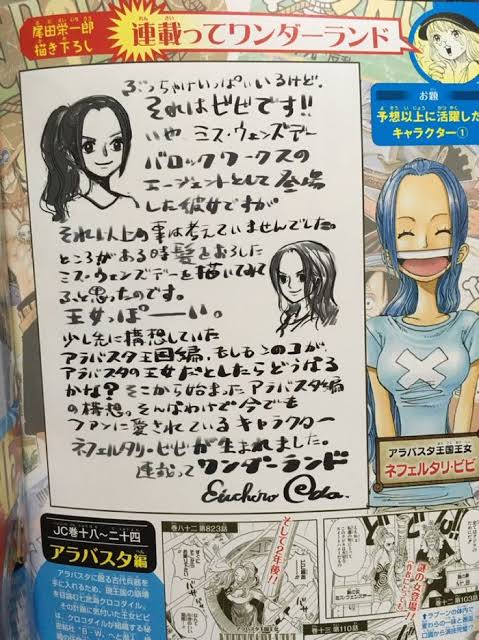 尾田栄一郎
描き下ろし
連載ってワンダーランド
お題
予想以上に活躍した
キャラクター①
ぶっちゃけいっぱいいるけど、
それはビビです!!
いや ミス・ウェンズデー
バロックワークスの
エージェントとして登場
した彼女ですが
それ以上の事は考えていませんでした。
ところがある時髪をおろした
ミス・ウェンズデーを描いてみて
ふと思ったのです。
王女っぽーい。
少し先に構想していた
アラバスタ王国編、もしもこのコが、
アラバスタの王女だとしたらどうなる
かな? そこから始まったアラバスタ編
の構想。そんなわけで今でも
ファンに愛されているキャラクター
ネフェルタリ・ビビが生まれました。
連載って ワンダーランド
Eiichiro Oda.
アラバスタ王国王女
ネフェルタリ・ビビ
JC巻十八〜二十四
アラバスタ編
アラバスタに眠る古代兵器を
手に入れるため、現王国の崩壊
を目論む七武海クロコダイル。
その計画に気付いた王女ビビ
は、クロコダイルが組織する秘
巻八十二 第823話
そして2年後!!
謎の女登場!
作者にとっても
巻十二 第103話
巻十三 第110話